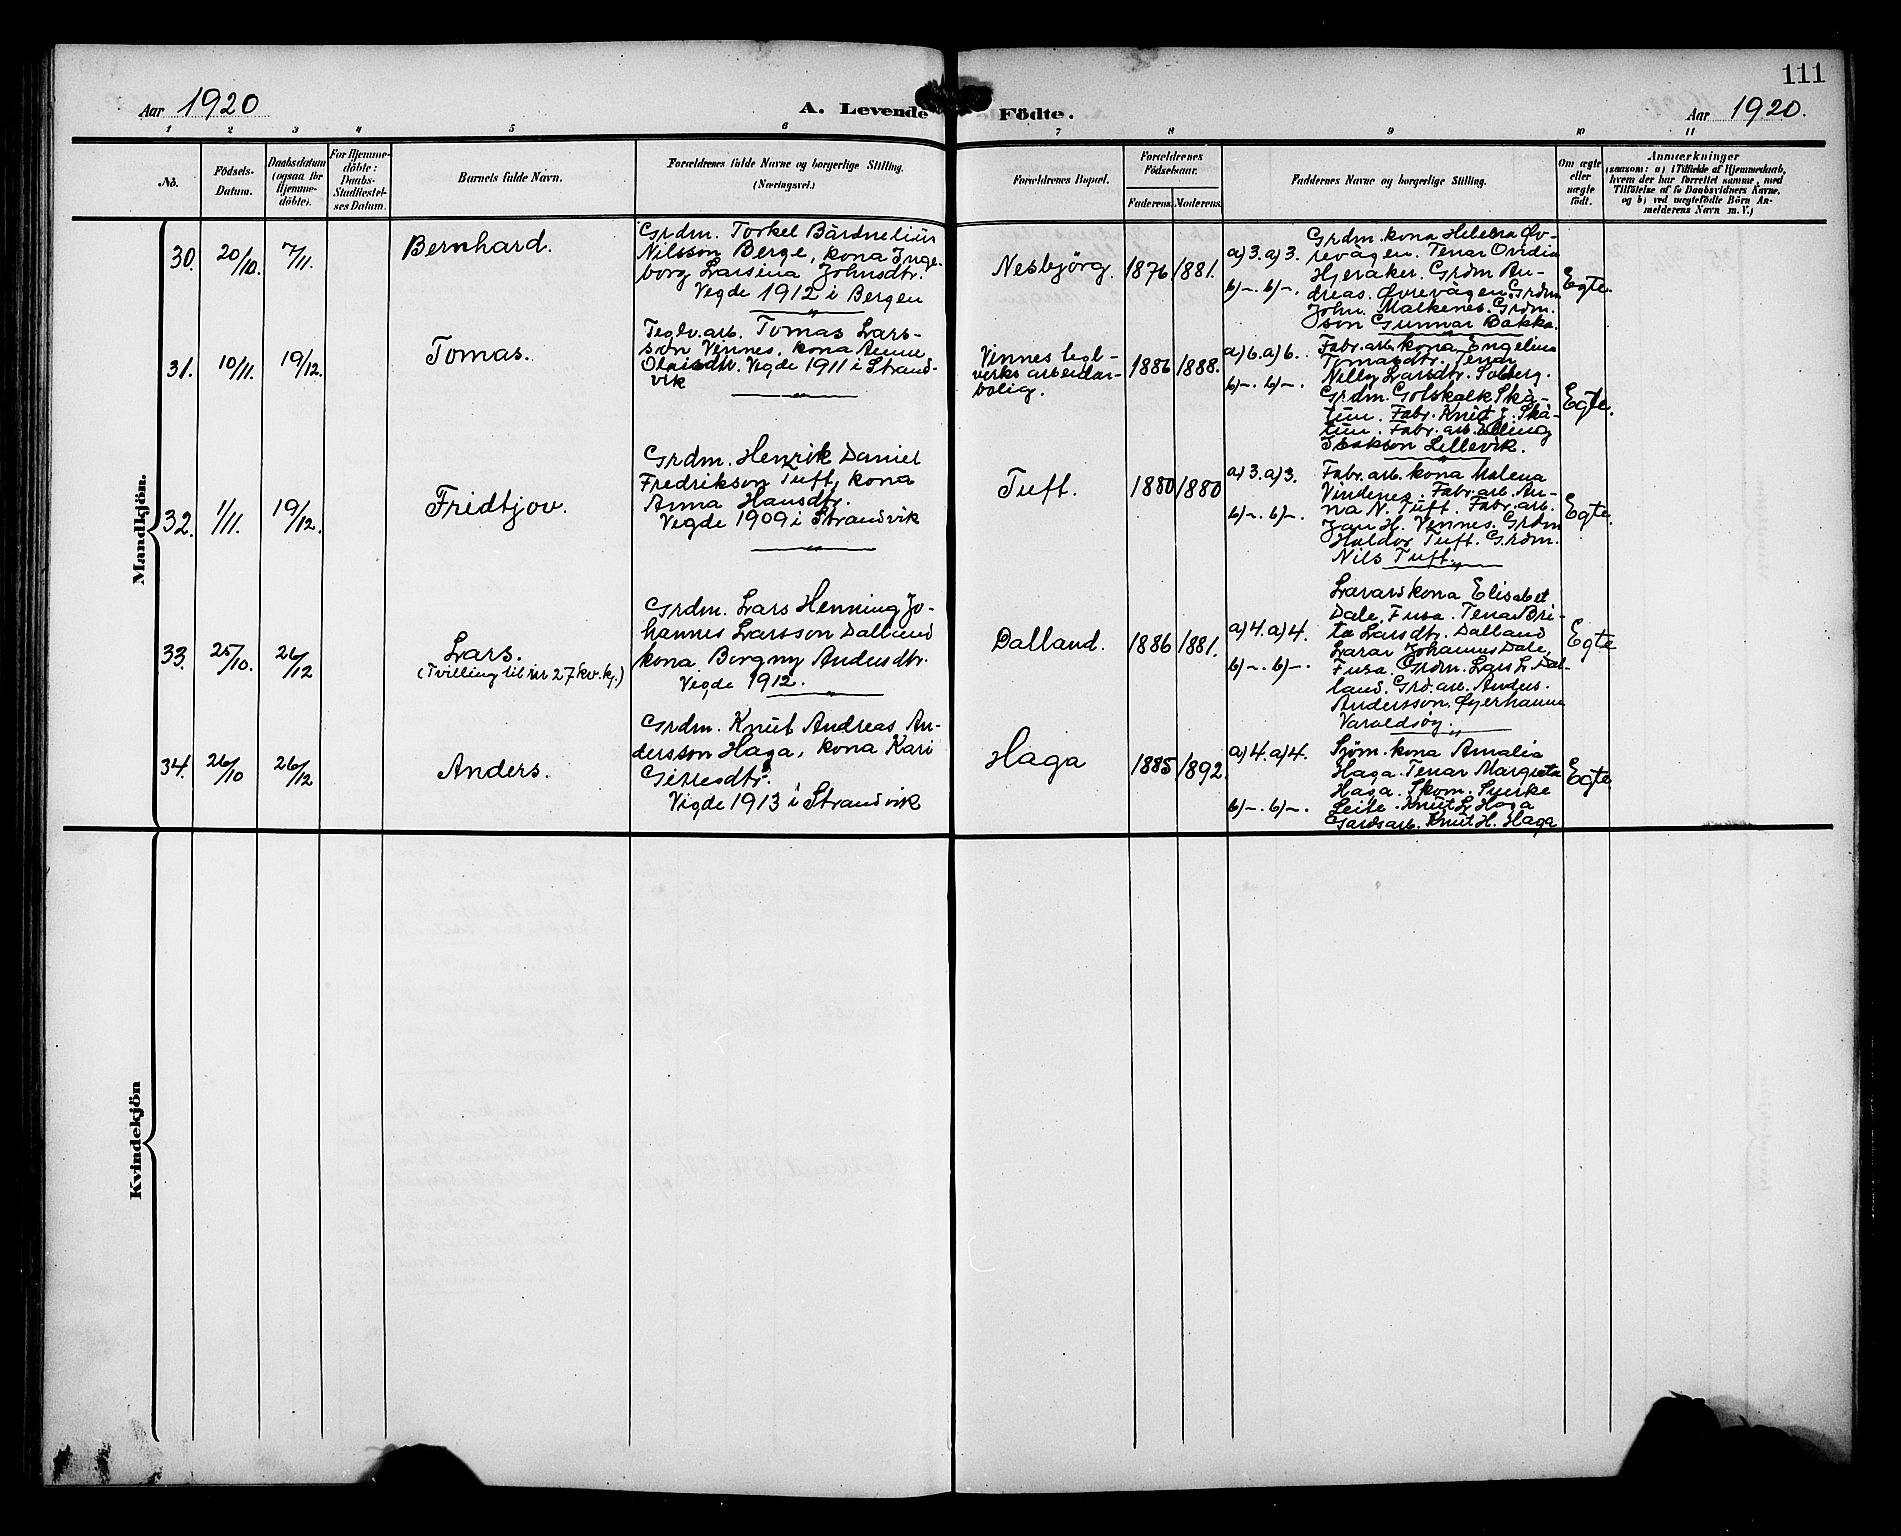 111
Aar 1920
A. Levende Födte.
Aar 1920.
1 2 3 4 5 6 7 8 9 10 11
No.
Födsels-
Datum.
Daabsdatum
(ogsaa for
Hjemme-
döbte).
For Hjemme-
döbte:
Daabs-
Stadfæstel-
ses Datum.
Barnets fulde Navn.
Forældrenes fulde Navne og borgerlige Stilling.
(Næringsvei.)
Forældrenes Bopæl.
Forældrenes
Födselsaar.
Faderens. Moderens.
Faddernes Navne og borgerlige Stilling.
Om ægte
eller
uægte
födt.
Anmærkninger
(saasom: a) i Tilfælde af Hjemmedaab,
hvem der har forrettet samme, med
Tilföielse af to Daabsvidners Navne,
og b) ved uægtefödte Börn An-
melderens Navn m. V.)
Mandkjön.
30. 20/10. 7/11.
Bernhard.
Grdm. Torkel Bårdnelius
Nilsson Berge, kona Inge-
borg Larsina Johnsdtr.
Vegde 1912 i Bergen
Nesbjörg. 1876, 1881.
a) 3. a) 3.
b) –. b) –.
Grdm. kona Helena Øv-
revågen. Tenar Ovidia
Hjeraker. Grdm An-
dreas. Øvrevågen. Grdm
John. Malkenes. Grdm.
son Gunnar Bakka.
Egte.
31. 10/11. 19/12.
Tomas.
Teglv.arb. Tomas Lars-
son Vinnes, kona Anna
Olaisdtr. Vegde 1911 i Strand-
vik
Vinnes tegl-
verks arbeidar-
bolig.
1886 1888.
a) 6. a) 6.
b) –. b) –.
Fabr. arb. kona Engelina
Tomasdtr. Tenar
Nilly Larsdtr. Solberg.
Grdm. Golskalk Skå-
tun. Fabr. Knut J. Skå-
tun. Fabr. arb. Elling
Isakson Lillevik.
Egte.
32. 1/11. 19/12.
Fridtjov.
Grdm. Henrik Daniel
Fredrikson Tuft, kona
Anna Hansdtr.
Vegde 1909 i Strandvik
Tuft.
1880 1880
a) 3. a) 3.
b) –. b) –.
Fabr. arb. kona Malena
Vindenes. Fabr. arb. An-
na N. Tuft. Fabr. arb.
Jan H. Vinnes. Grdm
Haldor Tuft. Grdm.
Nils Tuft.
Egte.
33. 25/10. 26/12
Lars.
(Tvilling til nr 27 kv. kj.)
Grdm. Lars Henning Jo-
hannes Larsson Dalland
kona Borgny Andersdtr.
Vegde 1912.
Dalland.
1886 1881.
a) 4. a) 4.
b) –. b) –.
Lærarskona Elisabet
Dale, Fusa. Tenar Bri-
ta Larsdtr. Dalland
Lærar Johannes Dale,
Fusa. Grdm. Lars L. Dal-
land. Grd. arb. Anders.
Andersson. Øyerhamn
Varaldsöy.
Egte
34. 26/10 26/12
Anders.
Grdm. Knut Andreas An-
dersson Haga, kona Kari
Girresdtr.
Vigde 1913 i Strandvik
Haga
1885 1892.
a) 4. a) 4.
b) –. b) –.
Sjöm. kona Amalia
Haga. Tenar Margreta
Haga. Skom. Synske
Leite. Knut L. Haga
Gardsarb. Knut H. Haga
Egte
Kvindekjön